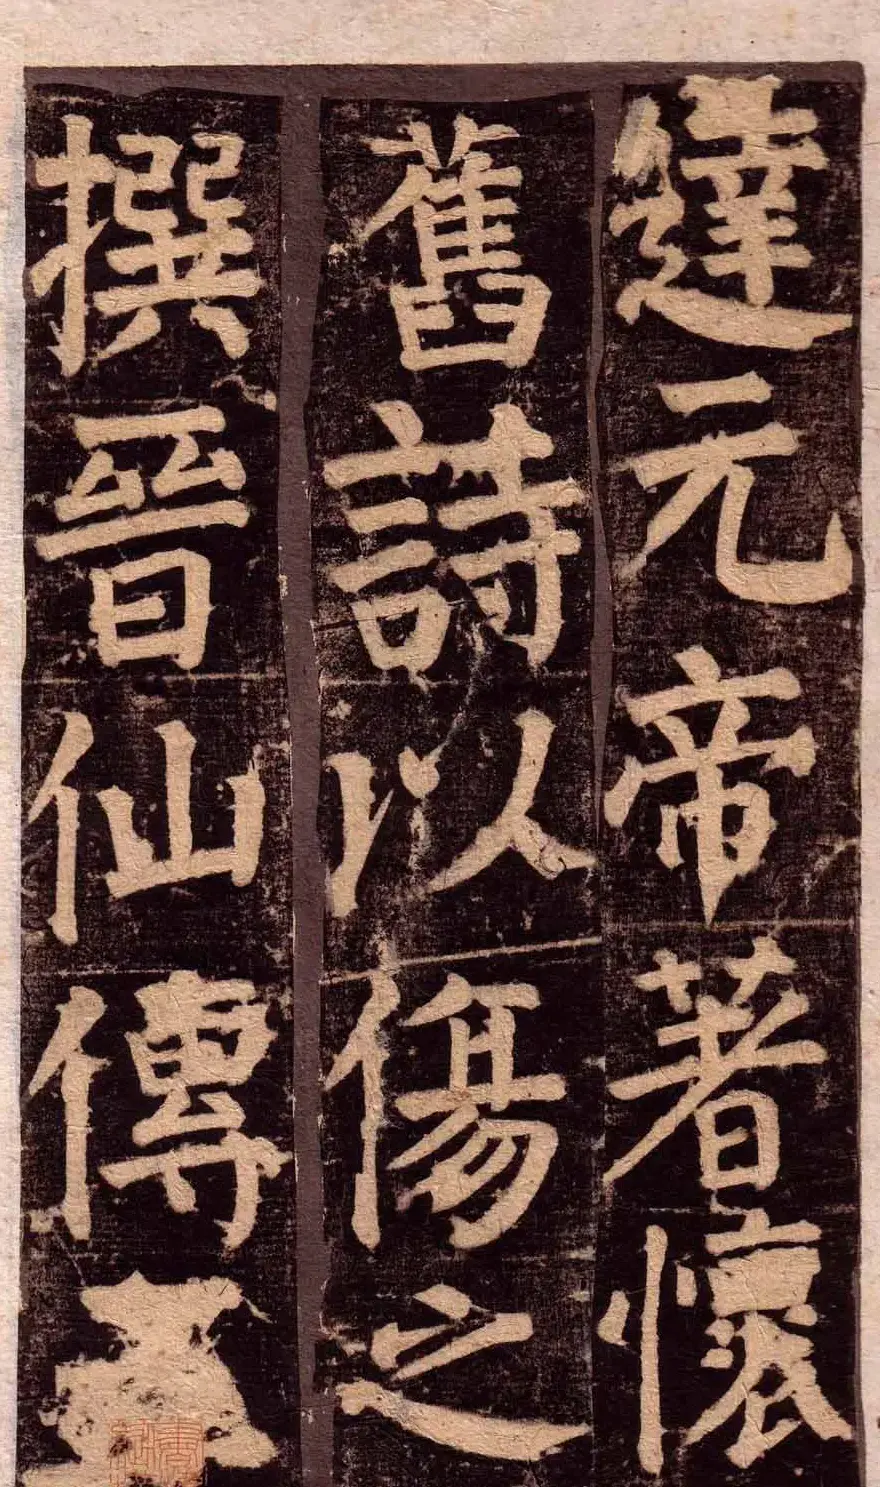 達元帝著懷
舊詩以傷之
撰晉仙傳